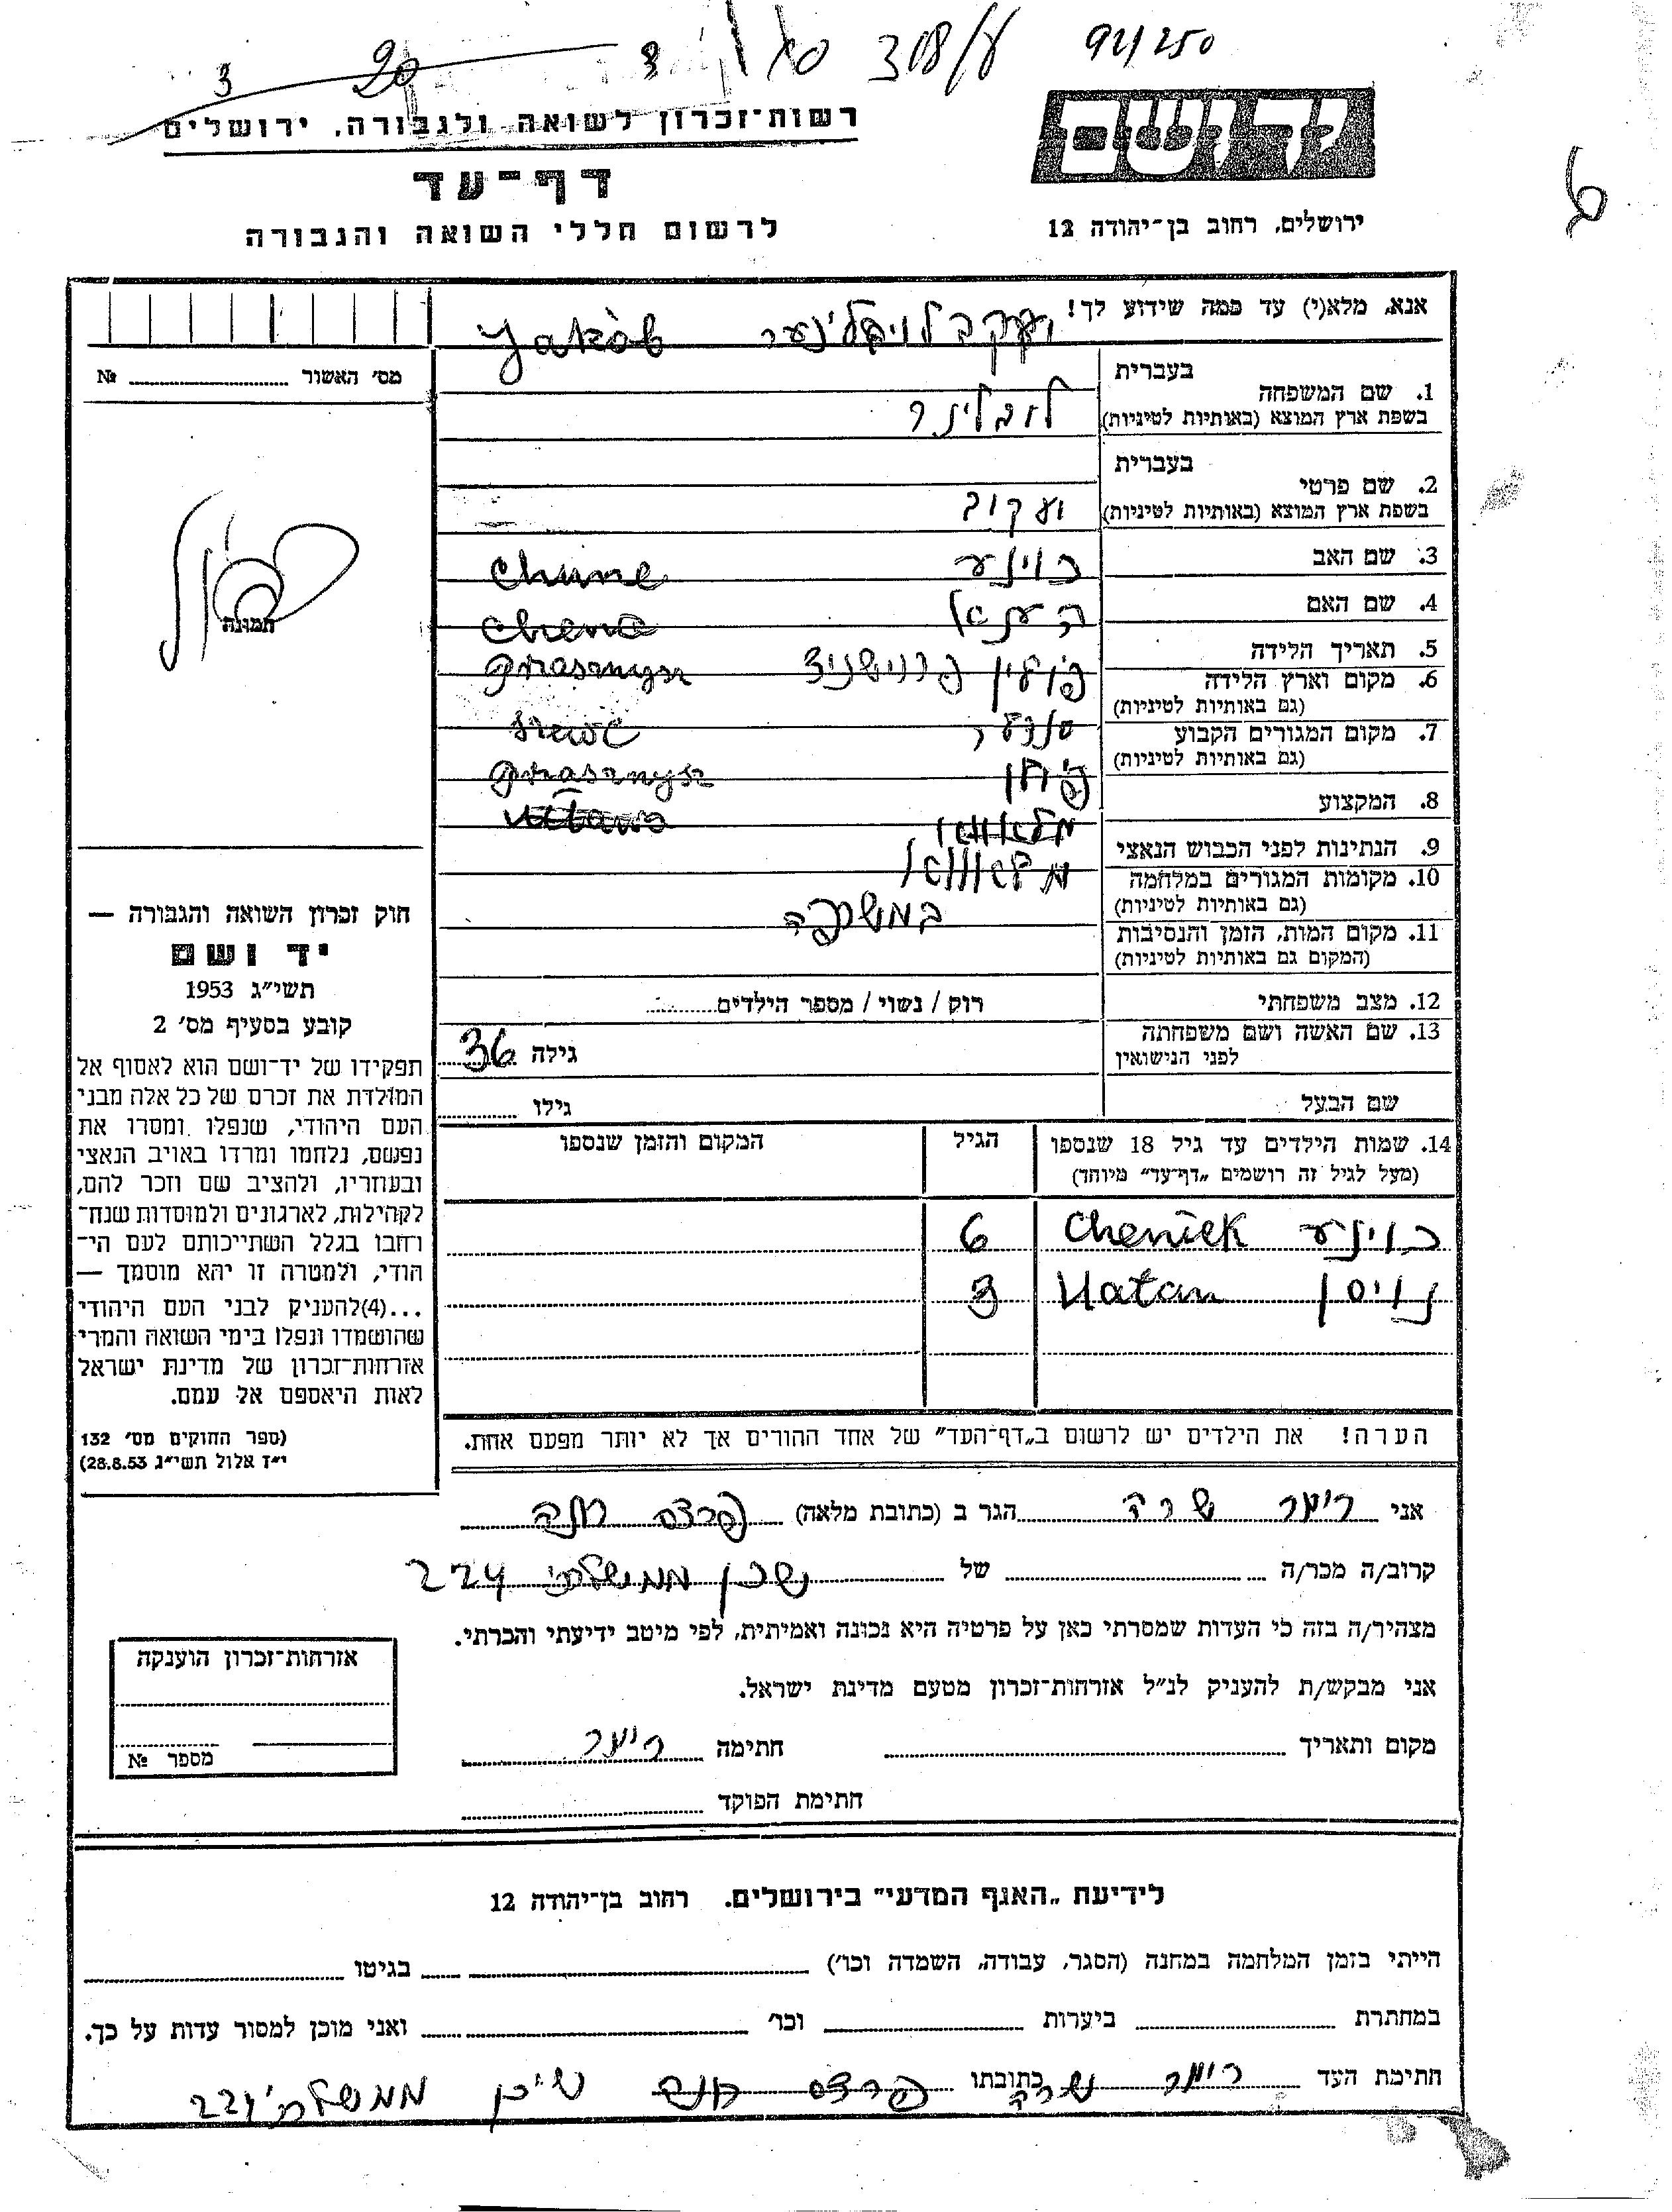 3 20 3
308/ע
94/250
ידושם
רשות־זכרון לשואה ולגבורה, ירושלים
דף־עד
לרשום חללי השואה והגבורה
ירושלים, רחוב בן־יהודה 12
אנא, מלא(י) עד כמה שידוע לך!
יעקב לויבלינער Jakòb
מס׳ האשור № 
תמונה
1. שם המשפחה
בעברית
בשפת ארץ המוצא (באותיות לטיניות)
לובלינר
2. שם פרטי
בעברית
בשפת ארץ המוצא (באותיות לטיניות)
יעקוב
3. שם האב כוינע chune
4. שם האם chena
5. תאריך הלידה
6. מקום וארץ הלידה
(גם באותיות לטיניות)
7. מקום המגורים הקבוע
(גם באותיות לטיניות)
8. המקצוע
9. הנתינות לפני הכבוש הנאצי
10. מקומות המגורים במלחמה
(גם באותיות לטיניות)
11. מקום המות, הזמן והנסיבות
(המקום גם באותיות לטיניות)
במשרפה
12. מצב משפחתי רוק / נשוי / מספר הילדים
13. שם האשה ושם משפחתה
לפני הנישואין
גילה 36
שם הבעל גילו
14. שמות הילדים עד גיל 18 שנספו הגיל המקום והזמן שנספו
(מעל לגיל זה רושמים „דף־עד" מיוחד)
כוינע Cheniek 6
נויסן Natan 3
הערה! את הילדים יש לרשום ב„דף־העד" של אחד ההורים אך לא יותר מפעם אחת.
חוק זכרון השואה והגבורה —
יד ושם
תשי״ג 1953
קובע בסעיף מס׳ 2
תפקידו של יד־ושם הוא לאסוף אל
המולדת את זכרם של כל אלה מבני
העם היהודי, שנפלו ומסרו את
נפשם, נלחמו ומרדו באויב הנאצי
ובעוזריו, ולהציב שם וזכר להם,
לקהילות, לארגונים ולמוסדות שנח־
רחבו בגלל השתייכותם לעם הי־
הודי, ולמטרה זו יהא מוסמך —
...(4)להעניק לבני העם היהודי
שהושמדו ונפלו בימי השואה והמרי
אזרחות־זכרון של מדינת ישראל
לאות היאספם אל עמם.
(ספר החוקים מס׳ 132
י״ז אלול תשי״ג 28.8.53)
אני שרה הגר ב (כתובת מלאה) פרדס חנה
קרוב/ה מכר/ה של שכון ממשלתי 224
מצהיר/ה בזה כי העדות שמסרתי כאן על פרטיה היא נכונה ואמיתית, לפי מיטב ידיעתי והכרתי.
אני מבקש/ת להעניק לנ״ל אזרחות־זכרון מטעם מדינת ישראל.
מקום ותאריך חתימה
חתימת הפוקד
אזרחות־זכרון הוענקה
מספר №
לידיעת „האגף המדעי" בירושלים. רחוב בן־יהודה 12
הייתי בזמן המלחמה במחנה (הסגר, עבודה, השמדה וכו׳) בגיטו
במחתרת ביערות וכו׳ ואני מוכן למסור עדות על כך.
חתימת העד שרה כתובתו פרדס חנה שיכון ממשלתי 224